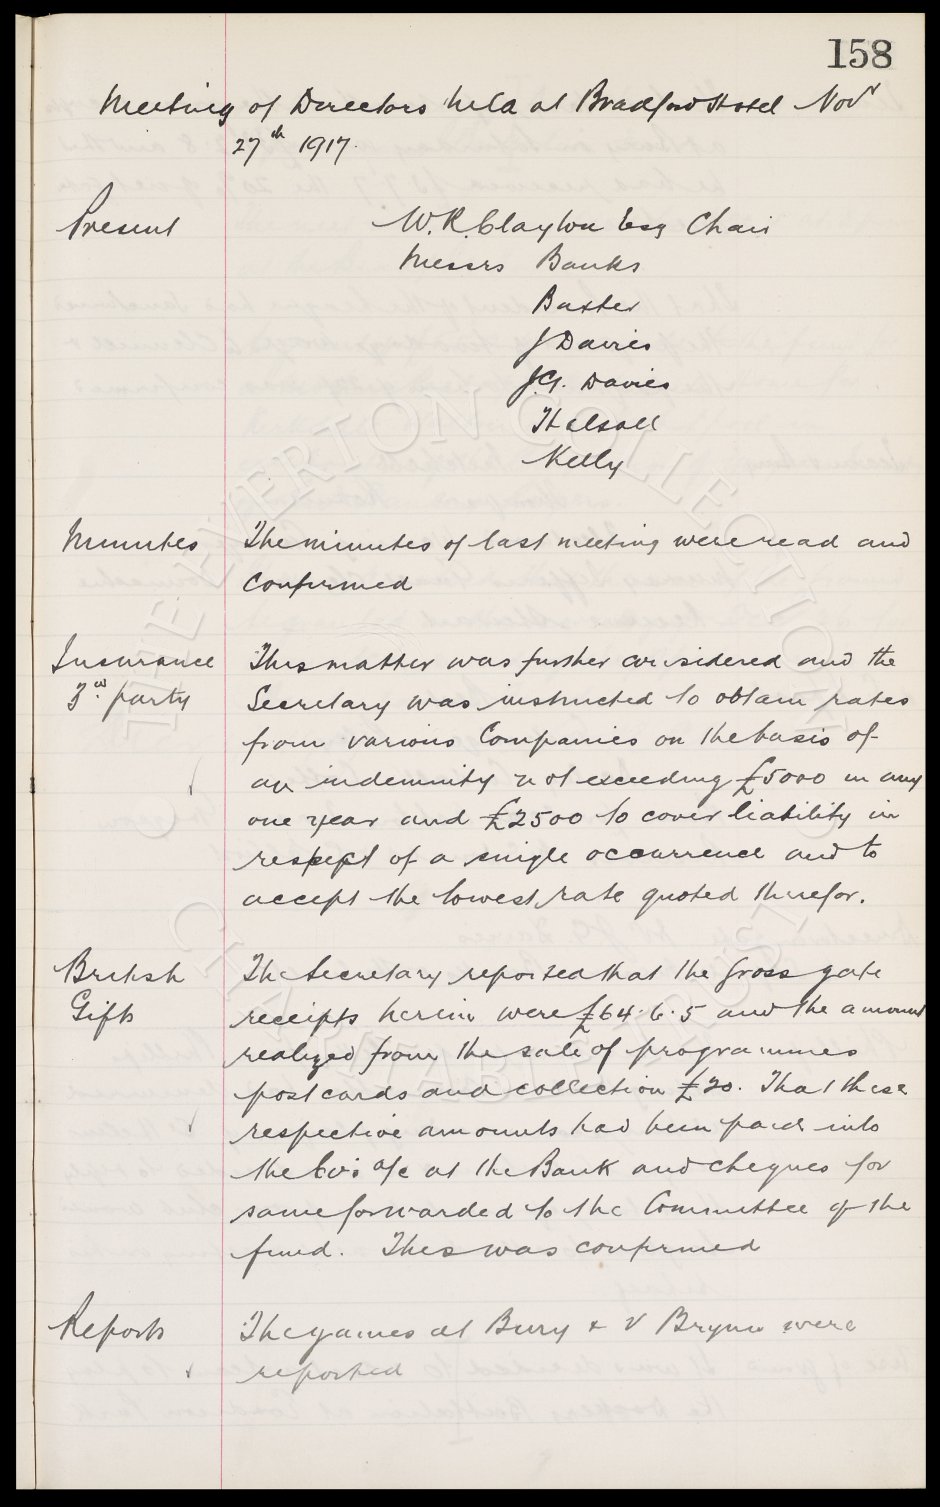 158
Meeting of Directors held at Bradford Hotel Novr
27th 1917.
Present
W. R. Clayton Esq Chair
Messrs Banks
Baxter
J Davies
J.G. Davies
Halsall
Kelly
Minutes The minutes of last meeting were read and
confirmed
Insurance This matter was further considered and the
3rd party Secretary was instructed to obtain rates
from various Companies on the basis of
an indemnity not exceeding £5000 in any
one year and £2500 to cover liability in
respect of a single occurrence and to
accept the lowest rate quoted therefor.
British The Secretary reported that the gross gate
Gifts receipts herein were £64.6.5 and the amount
realized from the sale of programmes
postcards and collection £20. That these
respective amounts had been paid into
the Co's a/c at the Bank and cheques for
same forwarded to the Committee of the
fund. This was confirmed
Reports The games at Bury & v Brynn were
reported
THE EVERTON COLLECTION
CHARITABLE TRUST